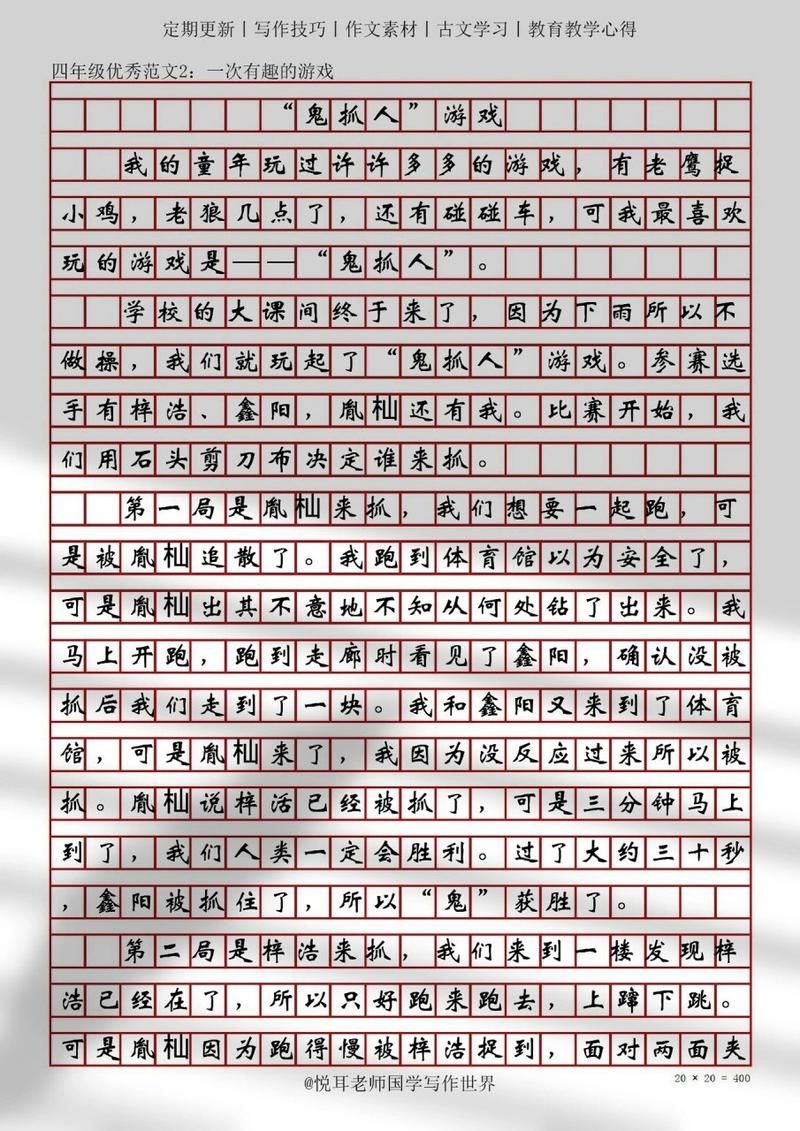 定期更新丨写作技巧丨作文素材丨古文学习丨教育教学心得
四年级优秀范文2：一次有趣的游戏
“鬼抓人”游戏
我的童年玩过许许多多的游戏，有老鹰捉
小鸡，老狼几点了，还有碰碰车，可我最喜欢
玩的游戏是——“鬼抓人”。
学校的大课间终于来了，因为下雨所以不
做操，我们就玩起了“鬼抓人”游戏。参赛选
手有梓浩、鑫阳，胤杣还有我。比赛开始，我
们用石头剪刀布决定谁来抓。
第一局是胤杣来抓，我们想要一起跑，可
是被胤杣追散了。我跑到体育馆以为安全了，
可是胤杣出其不意地不知从何处钻了出来。我
马上开跑，跑到走廊时看见了鑫阳，确认没被
抓后我们走到了一块。我和鑫阳又来到了体育
馆，可是胤杣来了，我因为没反应过来所以被
抓。胤杣说梓活已经被抓了，可是三分钟马上
到了，我们人类一定会胜利。过了大约三十秒
，鑫阳被抓住了，所以“鬼”获胜了。
第二局是梓浩来抓，我们来到一楼发现梓
浩已经在了，所以只好跑来跑去，上蹿下跳。
可是胤杣因为跑得慢被梓浩捉到，面对两面夹
20 × 20 = 400
@悦耳老师国学写作世界